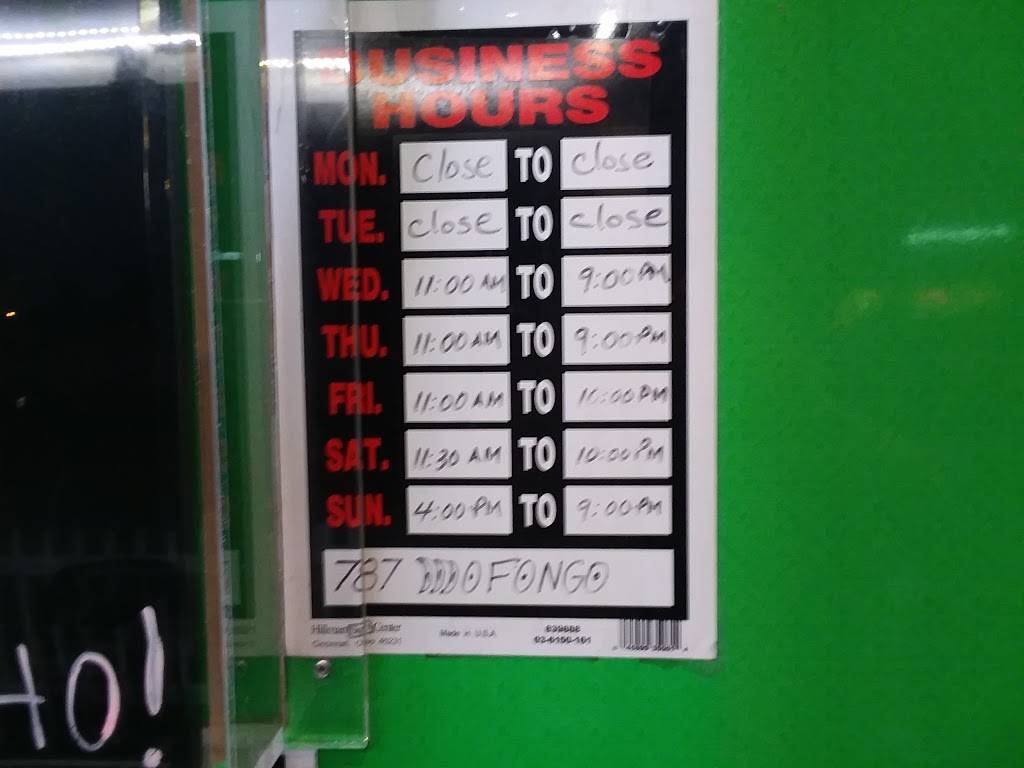 BUSINESS
HOURS
MON. Close TO Close
TUE. close TO close
WED. 11:00 AM TO 9:00 PM
THU. 11:00 AM TO 9:00 PM
FRI. 11:00 AM TO 10:00 PM
SAT. 11:30 AM TO 10:00 PM
SUN. 4:00 PM TO 9:00 PM
787 DDDOFONGO
Hillman Center Made in U.S.A. 839808
Cincinnati, Ohio 45231
HO!